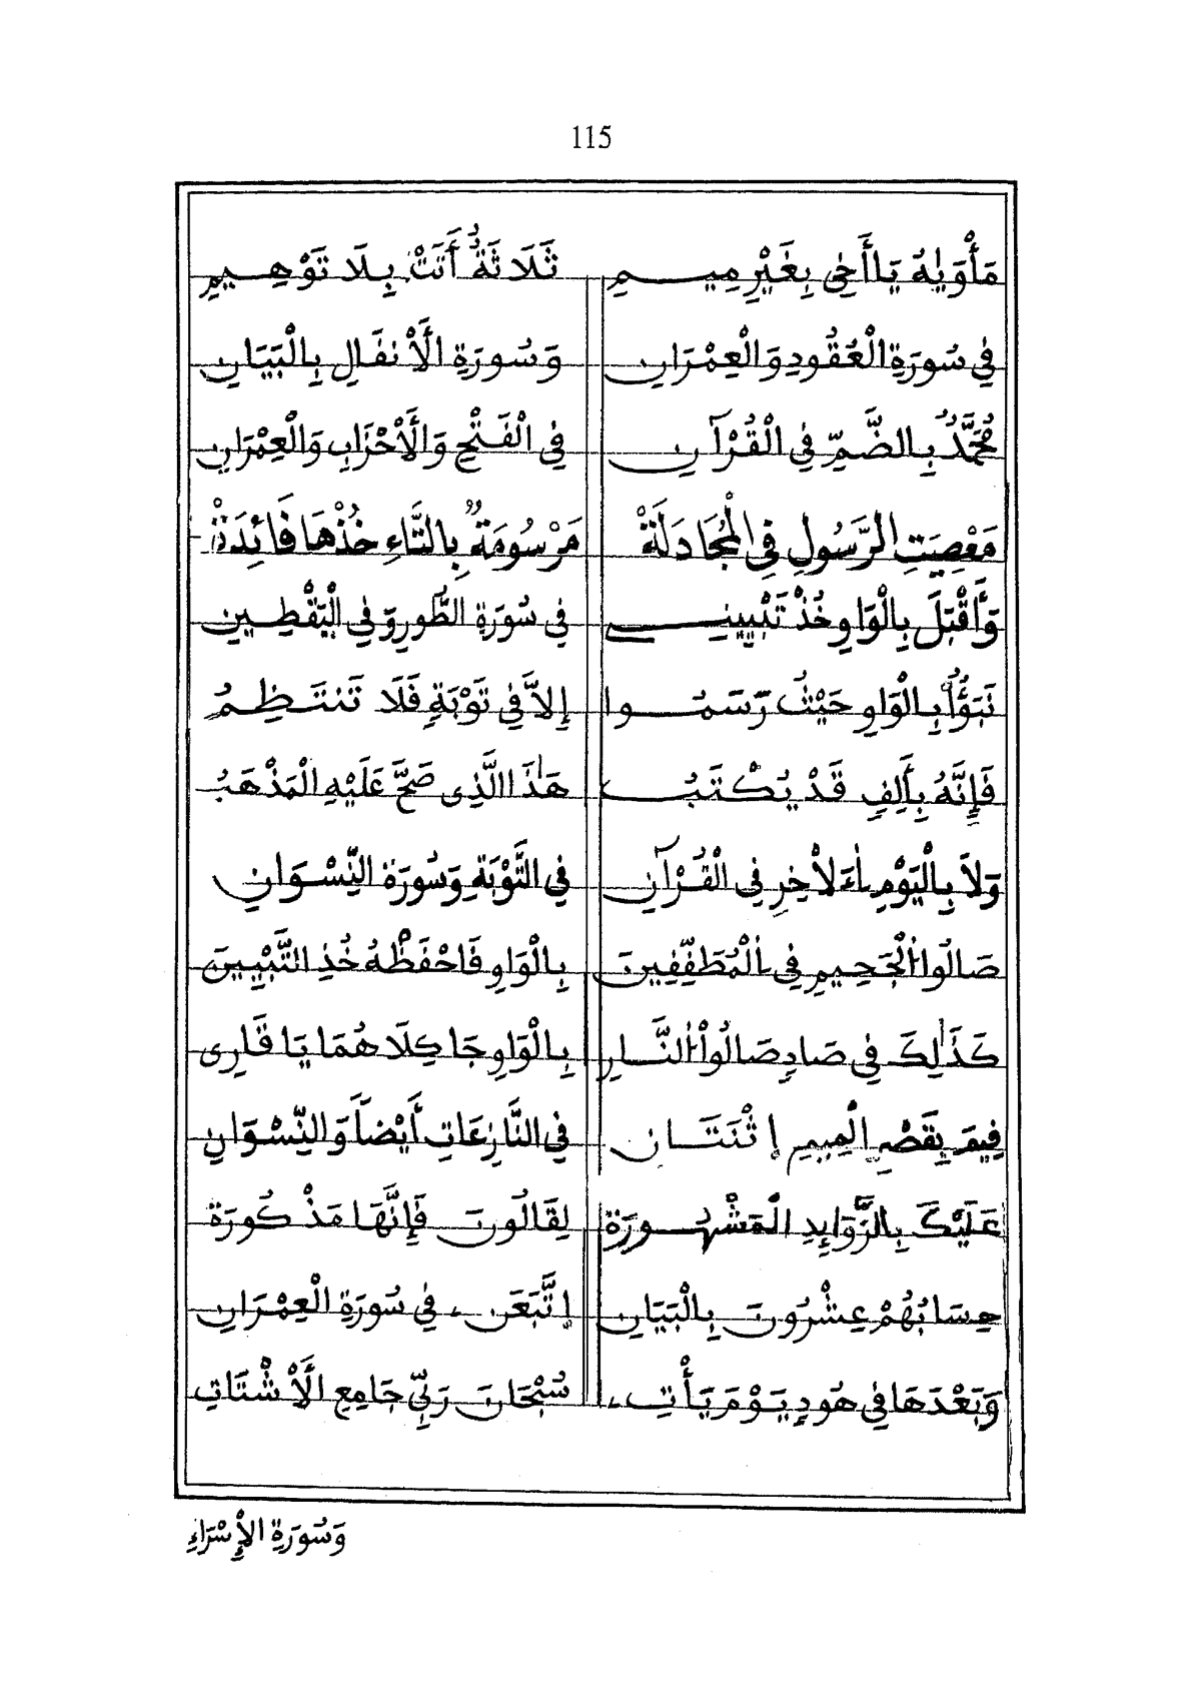 115
مَأْوَيٰهُ يَاأَخِى بِغَيْرِ مِيمِ ثَلَاثَةٌ أَتَتْ بِلَا تَوْهِيمِ
فِي سُورَةِ الْعُقُودِ وَالْعِمْرَانِ وَسُورَةِ الْأَنفَالِ بِالْبَيَانِ
مُحَمَّدٌ بِالضَّمِّ فِي الْقُرْآنِ فِي الْفَتْحِ وَالْأَحْزَابِ وَالْعِمْرَانِ
مَعْصِيَتِ الرَّسُولِ فِي الْمُجَادَلَةْ مَرْسُومَةٌ بِالتَّاءِ خُذْهَا فَائِدَةْ
وَأَقْبَلَ بِالْوَاوِ خُذْ تَبْيِينِي فِي سُورَةِ الطُّورِ وَفِي الْيَقْطِينِ
نَبَؤُاْ بِالْوَاوِ حَيْثُ رَسَمُوا إِلَّا فِي تَوْبَةٍ فَلَا تَنتَظِمُ
فَإِنَّهُ بِأَلِفٍ قَدْ يُكْتَبُ هَٰذَا الَّذِى صَحَّ عَلَيْهِ الْمَذْهَبُ
وَلَا بِالْيَوْمِ اءَلْأَخِرِ فِي الْقُرْآنِ فِي التَّوْبَةِ وَسُورَةِ النِّسْوَانِ
صَالُواْ الْجَحِيمِ فِي الْمُطَفِّفِينَ بِالْوَاوِ فَاحْفَظْهُ خُذِ التَّبْيِينَ
كَذَٰلِكَ فِي صَادٍ صَالُواْ النَّارِ بِالْوَاوِ جَا كِلَاهُمَا يَا قَارِى
فِيمَ بِقَصْرِ الْمِيمِ إِثْنَتَانِ فِي النَّازِعَاتِ أَيْضاً وَالنِّسْوَانِ
عَلَيْكَ بِالزَّوَائِدِ الْمَشْهُورَةْ لِقَالُونَ فَإِنَّهَا مَذْكُورَةْ
حِسَابُهُمْ عِشْرُونَ بِالْبَيَانِ إِتَّبَعَنِ ے فِي سُورَةِ الْعِمْرَانِ
وَبَعْدَهَا فِي هُودٍ يَوْمَ يَأْتِ ے سُبْحَانَ رَبِّي جَامِعِ الْأَشْتَاتِ
وَسُورَةِ الْإِسْرَاءِ